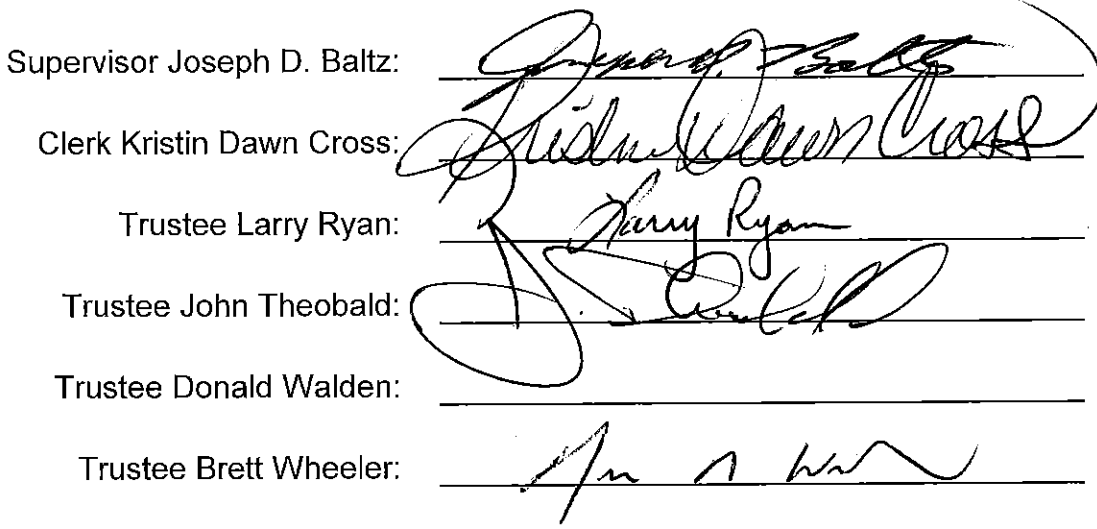 Supervisor Joseph D. Baltz: Joseph D. Baltz
Clerk Kristin Dawn Cross: Kristin Dawn Cross
Trustee Larry Ryan: Larry Ryan
Trustee John Theobald: J. Theobald
Trustee Donald Walden:
Trustee Brett Wheeler: